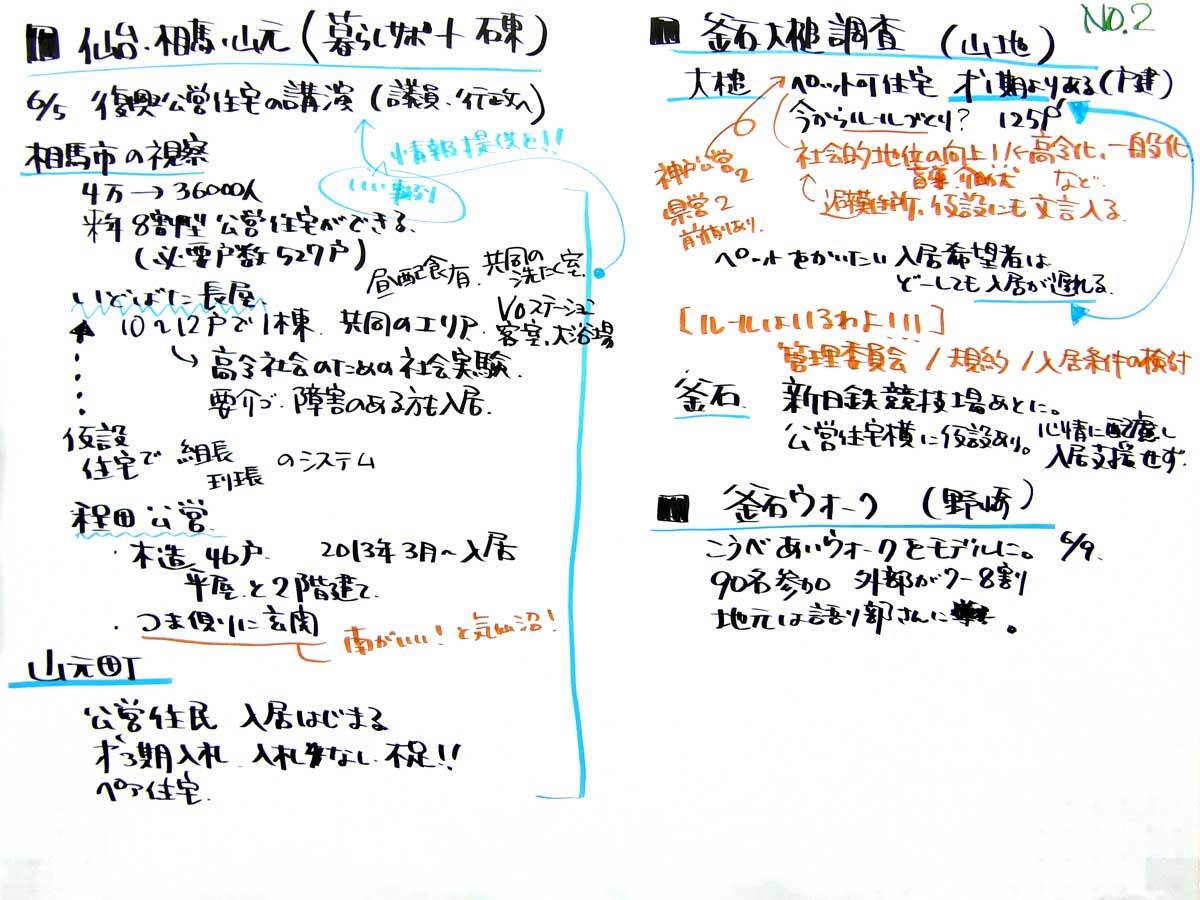 ■ 仙台・相馬・山元(暮らしサポート 石東)
6/5 復興公営住宅の講演(議員・行政へ)
情報提供を!!
いい事例
相馬市の視察
4万→36000人
来年8割型公営住宅ができる。
(必要戸数527戸)
昼配食有. 共同の洗たく室.
いどばた長屋.
Voステーション
10〜12戸で1棟. 共同のエリア. 客室.大浴場
高令社会のための社会実験.
要介ゴ. 障害のある方も入居.
仮設住宅で 組長 班長 のシステム
程田公営.
・木造 46戸. 2013年3月〜入居
平屋と2階建て.
・つま側りに玄関
南がいい!と気仙沼!
山元町
公営住民 入居はじまる
オ3期入札 入札少なし 不足!!
ペア住宅.
NO.2
■ 釜石大槌調査 (山地)
大槌 ペット可住宅 オ1期よりある(戸建)
今からルールづくり? 125戸
社会的地位の向上!/高令化.一般化
盲導.介助犬 など.
避難所.仮設にも文言入る.
神戸公営2
県営2
前例あり.
ペットをかいたい入居希望者は
どーしても入居が遅れる.
[ルールはいるわよ!!!]
管理委員会/規約/入居条件の検討
釜石. 新日鉄競技場あとに。
公営住宅横に仮設あり。心情に配慮し
入居支援せず.
■ 釜石ウォーク (野崎)
こうべあいウォークをモデルに。 6/9.
90名参加 外部が7-8割
地元は語り部さんに 。